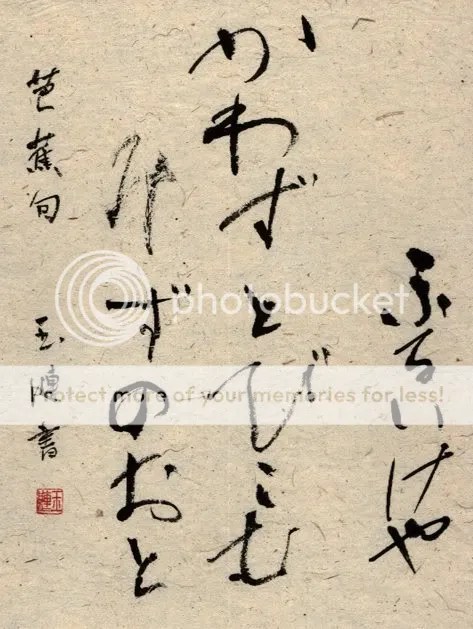 ふるいけや
かわずとびこむ
みずのおと
芭蕉句
玉 書
photobucket
Protect more of your memories for less!